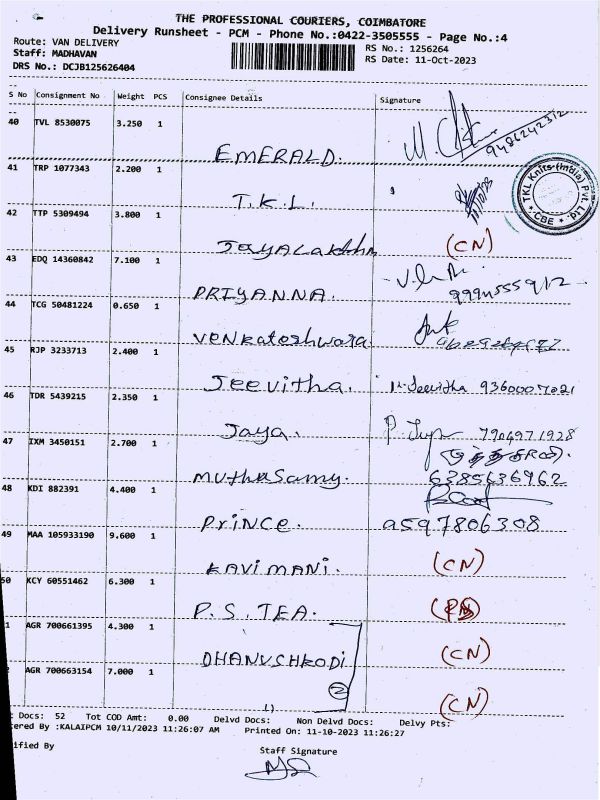 THE PROFESSIONAL COURIERS, COIMBATORE
Delivery Runsheet - PCM - Phone No.:0422-3505555 - Page No.:4
Route: VAN DELIVERY
RS No.: 1256264
Staff: MADHAVAN
RS Date: 11-Oct-2023
DRS No.: DCJB125626404
S No Consignment No Weight PCS Consignee Details Signature
40 TVL 8530075 3.250 1 EMERALD. 9486242312
41 TRP 1077343 2.200 1 T.K.L.
TKL Knits (India) Pvt. Ltd. * CBE *
42 TTP 5309494 3.800 1 Jayalakshm (CN)
43 EDQ 14360842 7.100 1 PRIYANNA.
44 TCG 50481224 0.650 1 Venkateshwara
45 RJP 3233713 2.400 1 Jeevitha. Jeevitha 9360007021
46 TDR 5439215 2.350 1 Jaya. 7904971928
47 IXM 3450151 2.700 1 Muthusamy. 6385636962
48 KDI 882391 4.400 1 Prince. 9597806308
49 MAA 105933190 9.600 1 KAVIMANI. (CN)
50 KCY 60551462 6.300 1 P.S.TEA.
1 AGR 700661395 4.300 1 DHANUSHKODI (CN)
AGR 700663154 7.000 1 11 2 (CN)
Docs: 52 Tot COD Amt: 0.00 Delvd Docs: Non Delvd Docs: Delvy Pts:
ered By :KALAIPCM 10/11/2023 11:26:07 AM Printed On: 11-10-2023 11:26:27
ified By
Staff Signature